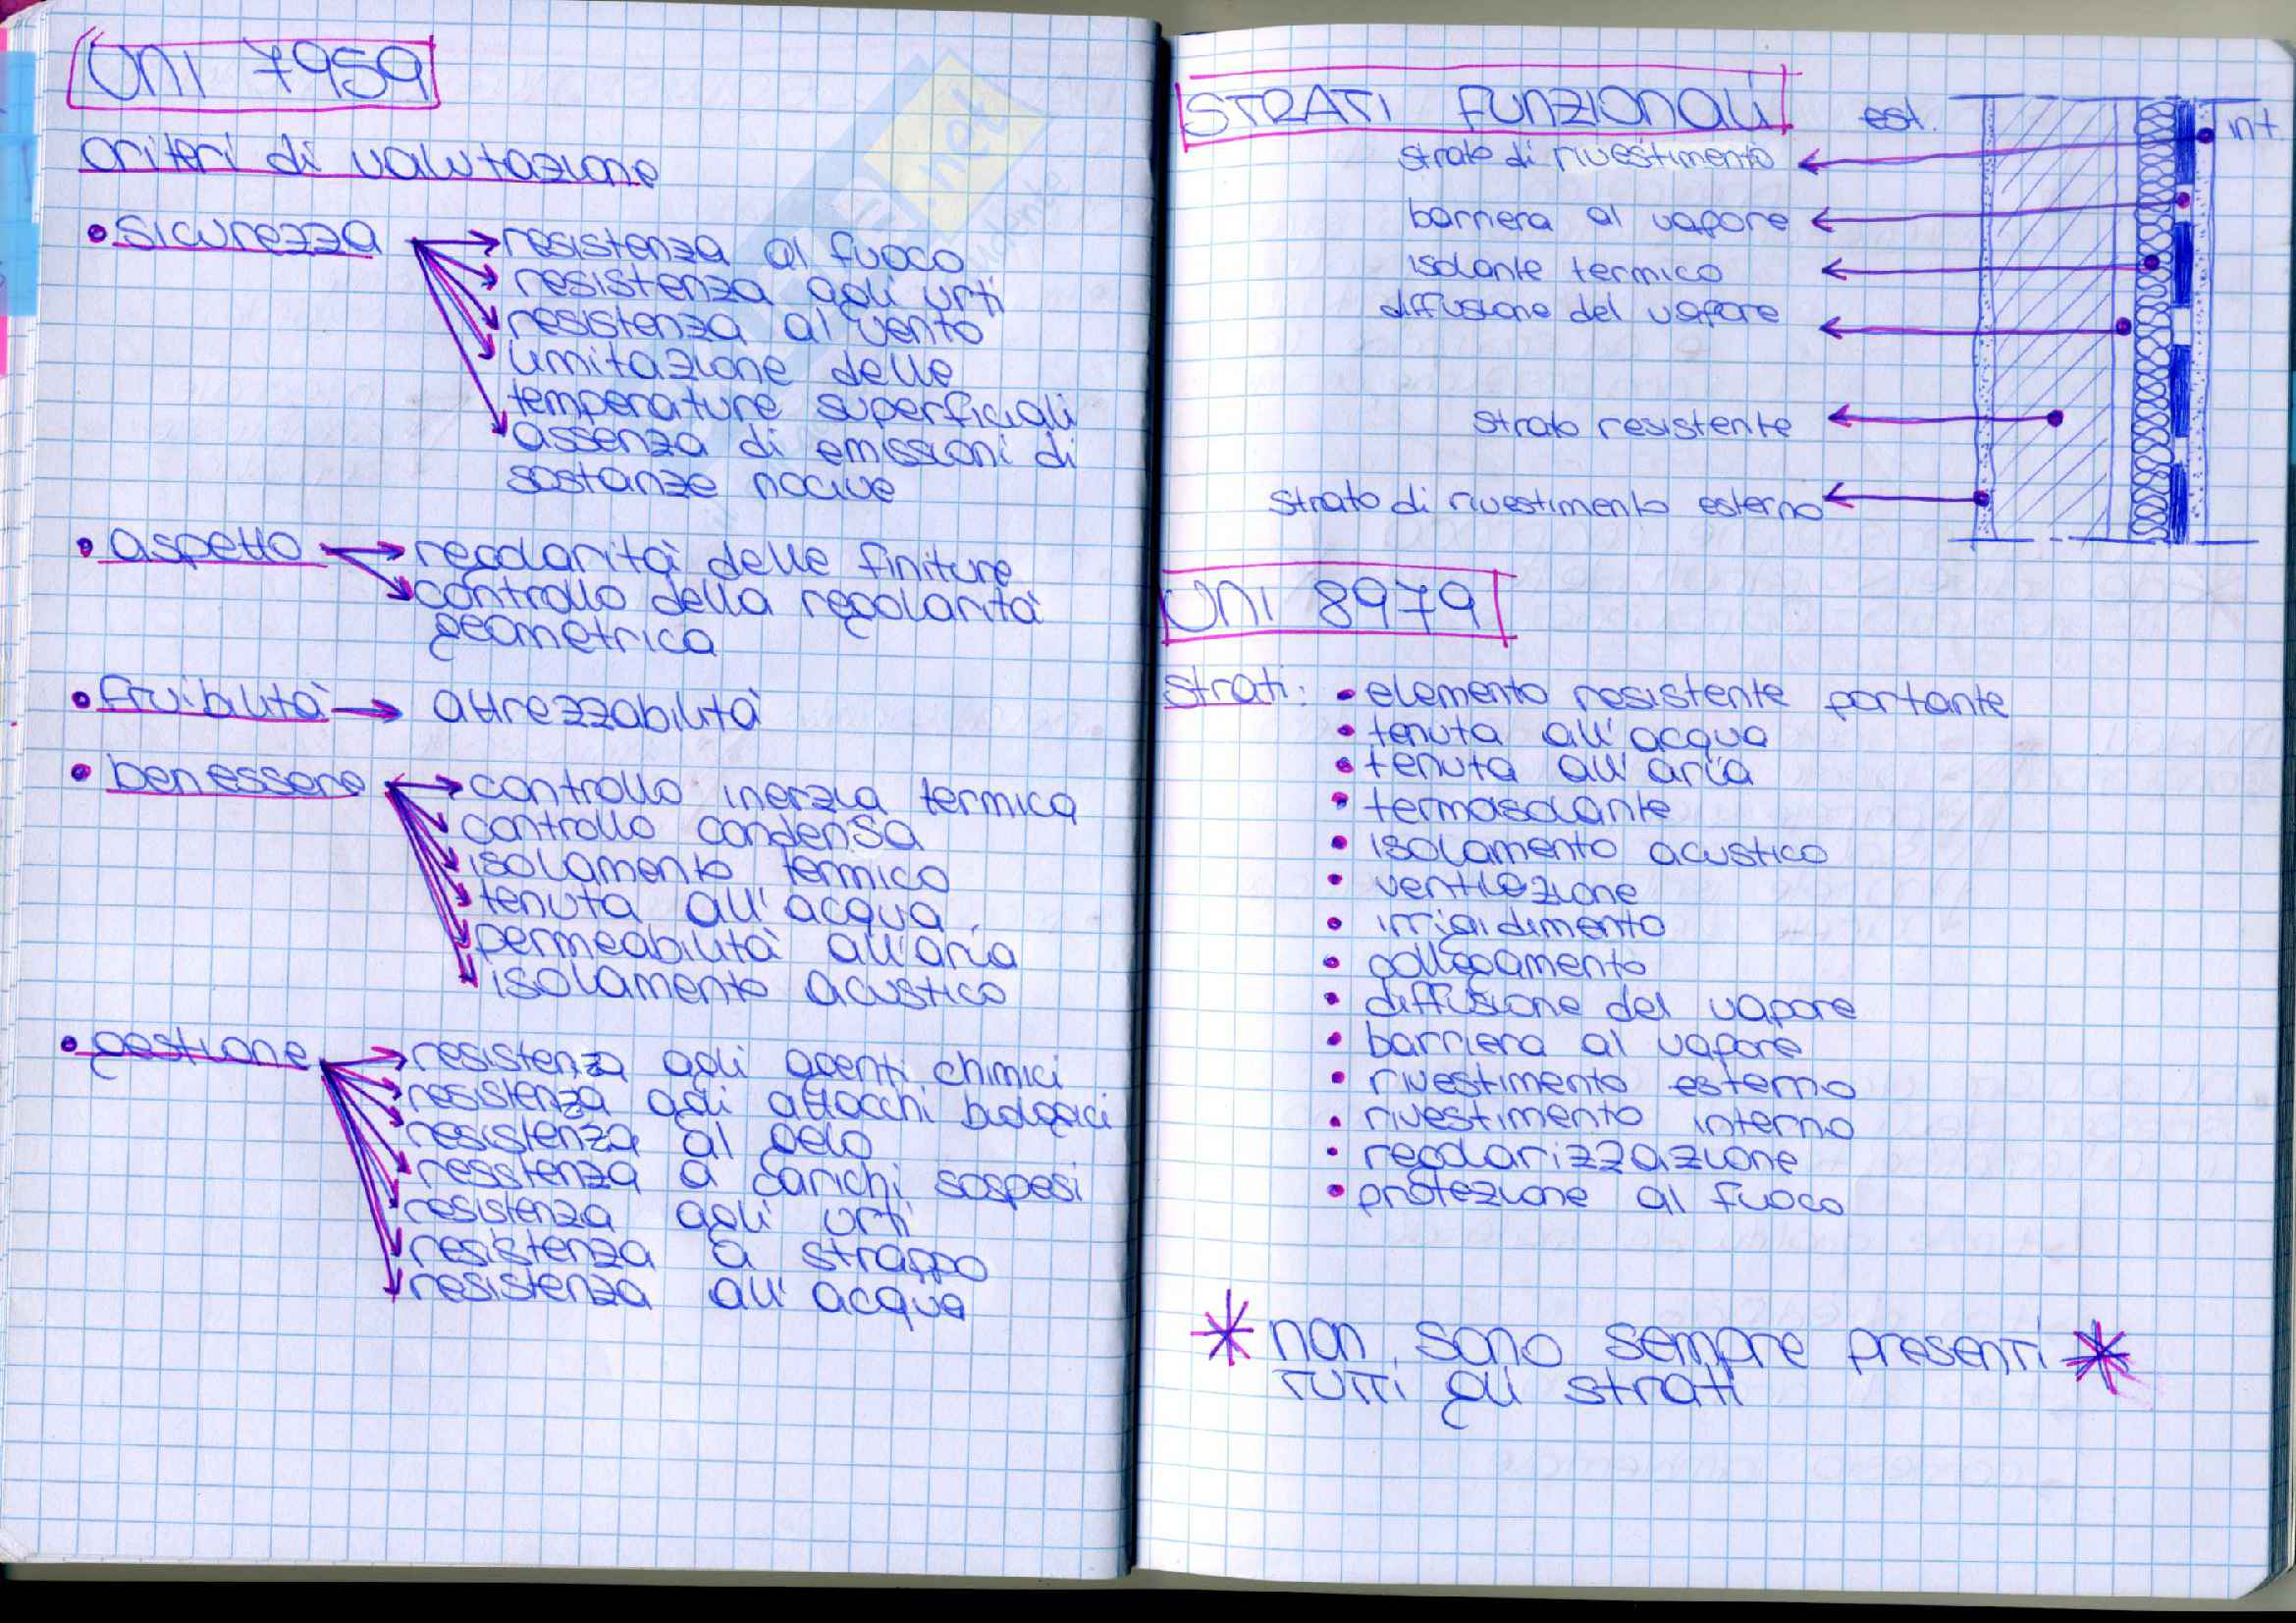 UNI 7959
criteri di valutazione
• sicurezza → resistenza al fuoco
resistenza agli urti
resistenza al vento
limitazione delle
temperature superficiali
assenza di emissioni di
sostanze nocive
• aspetto → regolarità delle finiture
controllo della regolarità
geometrica
• fruibilità → attrezzabilità
• benessere → controllo inerzia termica
controllo condensa
isolamento termico
tenuta all'acqua
permeabilità all'aria
isolamento acustico
• gestione → resistenza agli agenti chimici
resistenza agli attacchi biologici
resistenza al gelo
resistenza a carichi sospesi
resistenza agli urti
resistenza a strappo
resistenza all'acqua
.net
STRATI FUNZIONALI
est. int.
strato di rivestimento
barriera al vapore
isolante termico
diffusione del vapore
strato resistente
strato di rivestimento esterno
UNI 8979
strati: • elemento resistente portante
• tenuta all'acqua
• tenuta all'aria
• termoisolante
• isolamento acustico
• ventilazione
• irrigidimento
• collegamento
• diffusione del vapore
• barriera al vapore
• rivestimento esterno
• rivestimento interno
• regolarizzazione
• protezione al fuoco
* non sono sempre presenti *
TUTTI gli strati